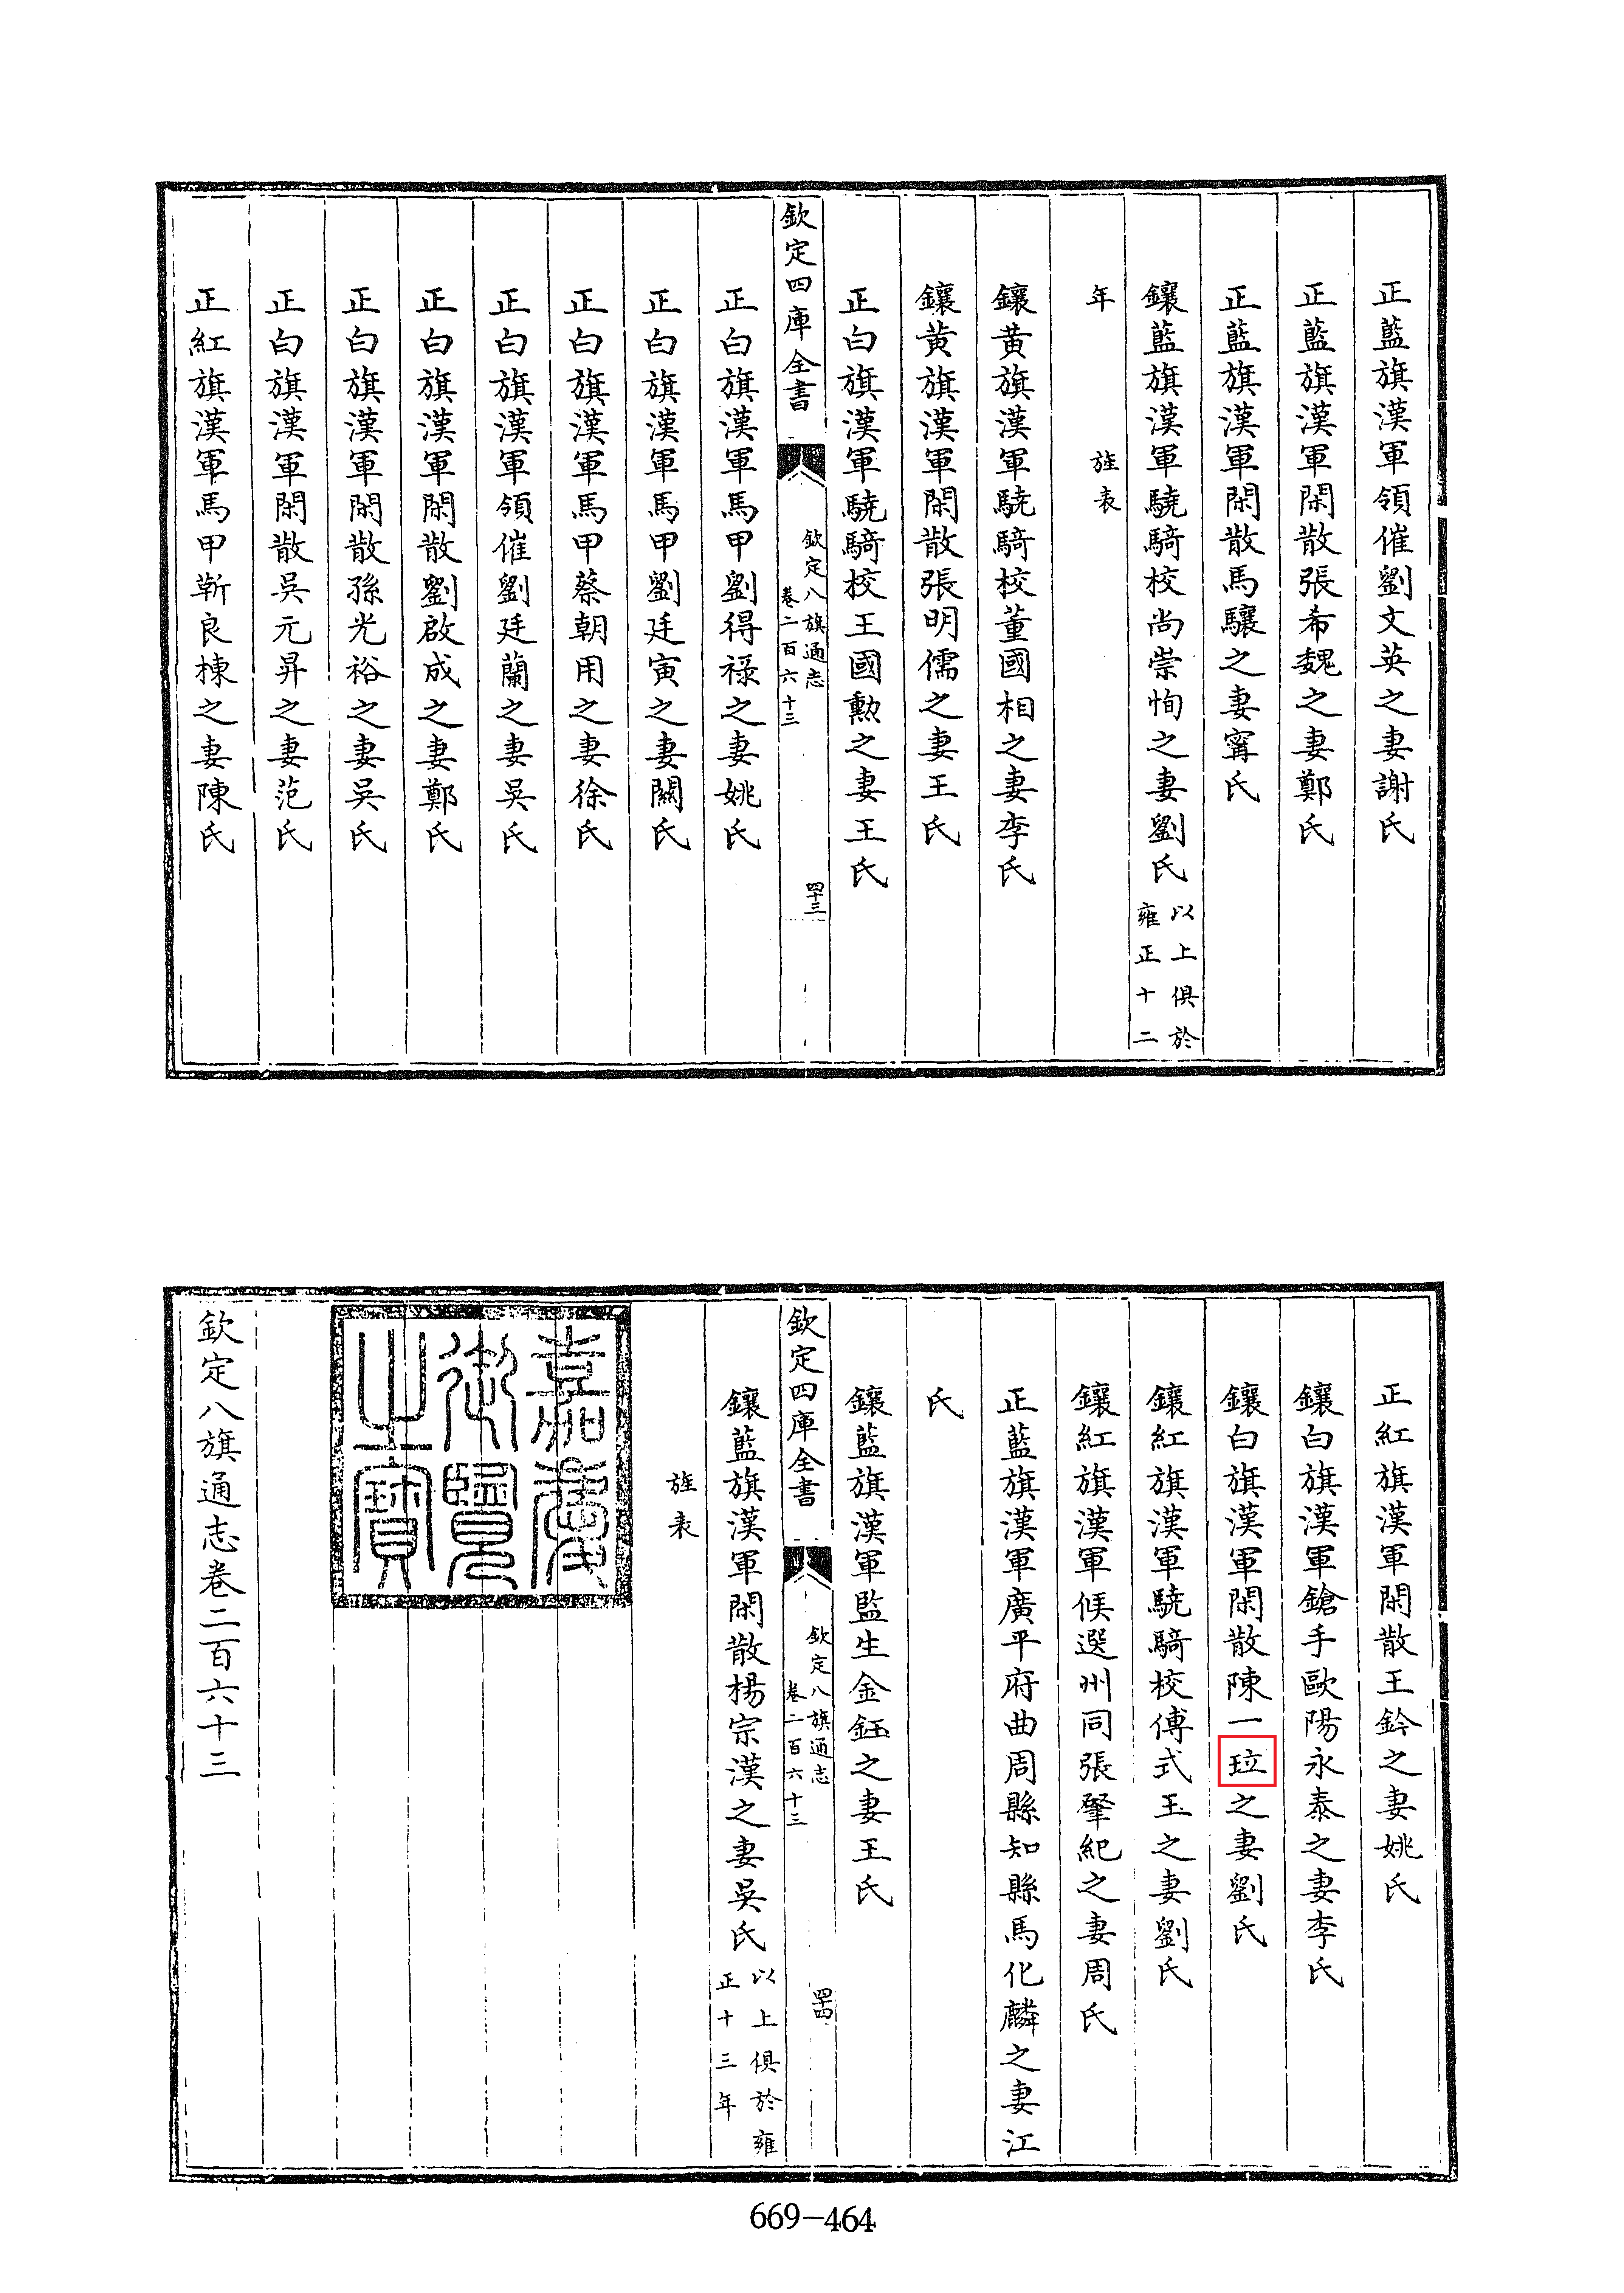 正藍旗漢軍領催劉文英之妻謝氏
正藍旗漢軍閑散張希魏之妻鄭氏
正藍旗漢軍閑散馬驤之妻甯氏
鑲藍旗漢軍驍騎校尚崇恂之妻劉氏以上俱於雍正十二
年 旌表
鑲黃旗漢軍驍騎校董國相之妻李氏
鑲黃旗漢軍閑散張明儒之妻王氏
正白旗漢軍驍騎校王國勲之妻王氏
欽定四庫全書 欽定八旗通志卷二百六十三 四十三
正白旗漢軍馬甲劉得祿之妻姚氏
正白旗漢軍馬甲劉廷寅之妻闕氏
正白旗漢軍馬甲蔡朝用之妻徐氏
正白旗漢軍領催劉廷蘭之妻吳氏
正白旗漢軍閑散劉啟成之妻鄭氏
正白旗漢軍閑散孫光裕之妻吳氏
正白旗漢軍閑散吳元昇之妻范氏
正紅旗漢軍馬甲靳良棟之妻陳氏
正紅旗漢軍閑散王鈐之妻姚氏
鑲白旗漢軍鎗手歐陽永泰之妻李氏
鑲白旗漢軍閑散陳一之妻劉氏
鑲紅旗漢軍驍騎校傅式玉之妻劉氏
鑲紅旗漢軍候選州同張肇紀之妻周氏
正藍旗漢軍廣平府曲周縣知縣馬化麟之妻江
氏
鑲藍旗漢軍監生金鈺之妻王氏
欽定四庫全書 欽定八旗通志卷二百六十三 四十四
鑲藍旗漢軍閑散楊宗漢之妻吳氏以上俱於雍正十三年
旌表
嘉慶
御覽
之寶
欽定八旗通志卷二百六十三
669-464